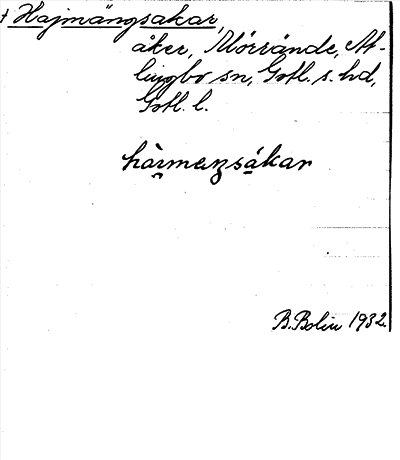 † Hajmängsakar,
åker, Mörrände, At-
lingbo sn, Gotl. s. hd,
Gotl. l.
håi̯mεŋsákar
B. Bolin 1932.